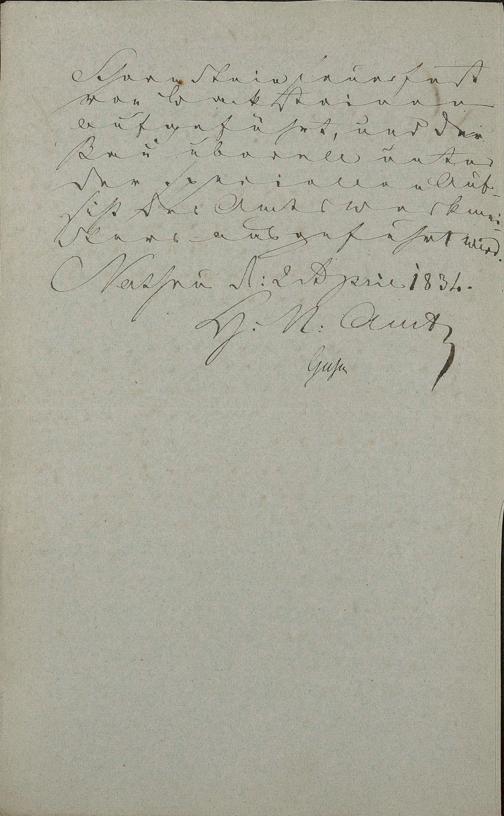 Schornstein feuerfest
von Backsteinen
aufgeführt, und der
Bau überall unter
der speciellen Auf-
sicht des Amtswerkmei-
sters ausgeführt wird.
Nassau d: 2 April 1834.
H: N: Amt